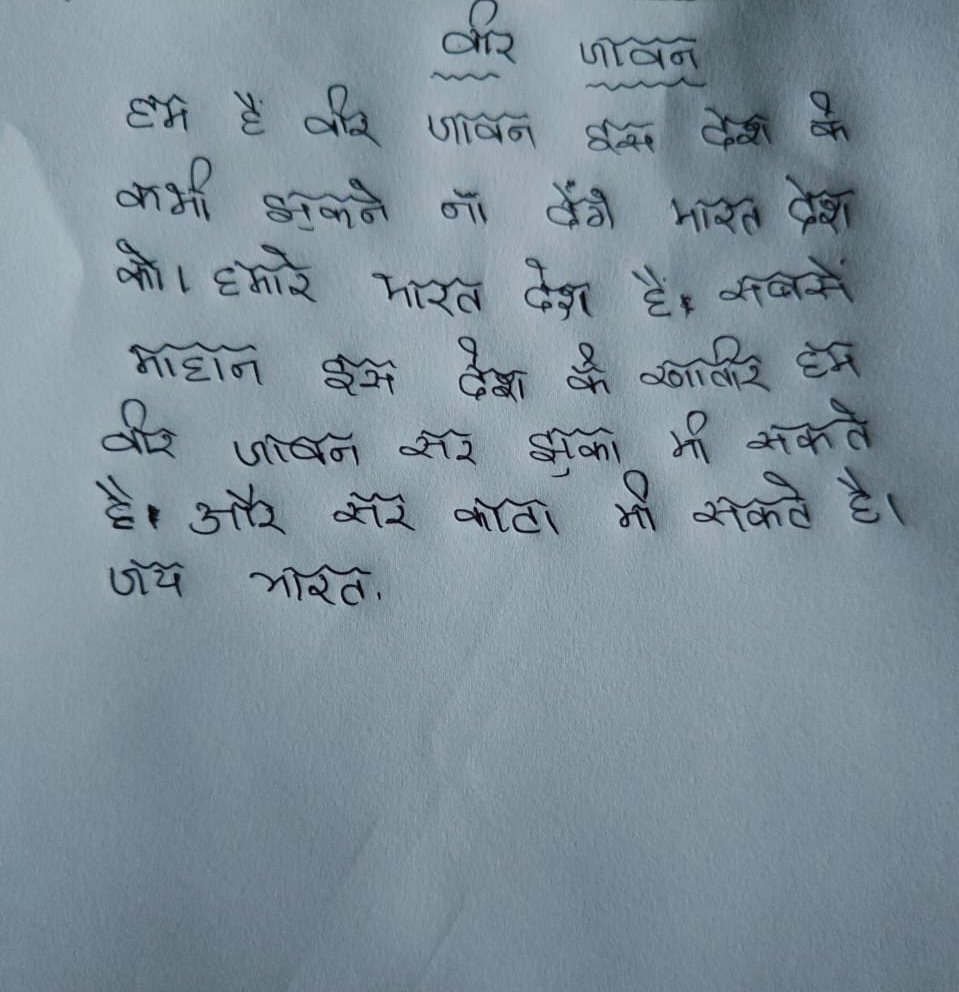 वीर जावन
हम है वीर जावन इस देश के
कभी झुकने नॉ देंगे भारत देश
को। हमारे भारत देश है सबसे
माहान इस देश के खातीर हम
वीर जावन सर झुका भी सकते
है। और सर काटा भी सकते है।
जय भारत.